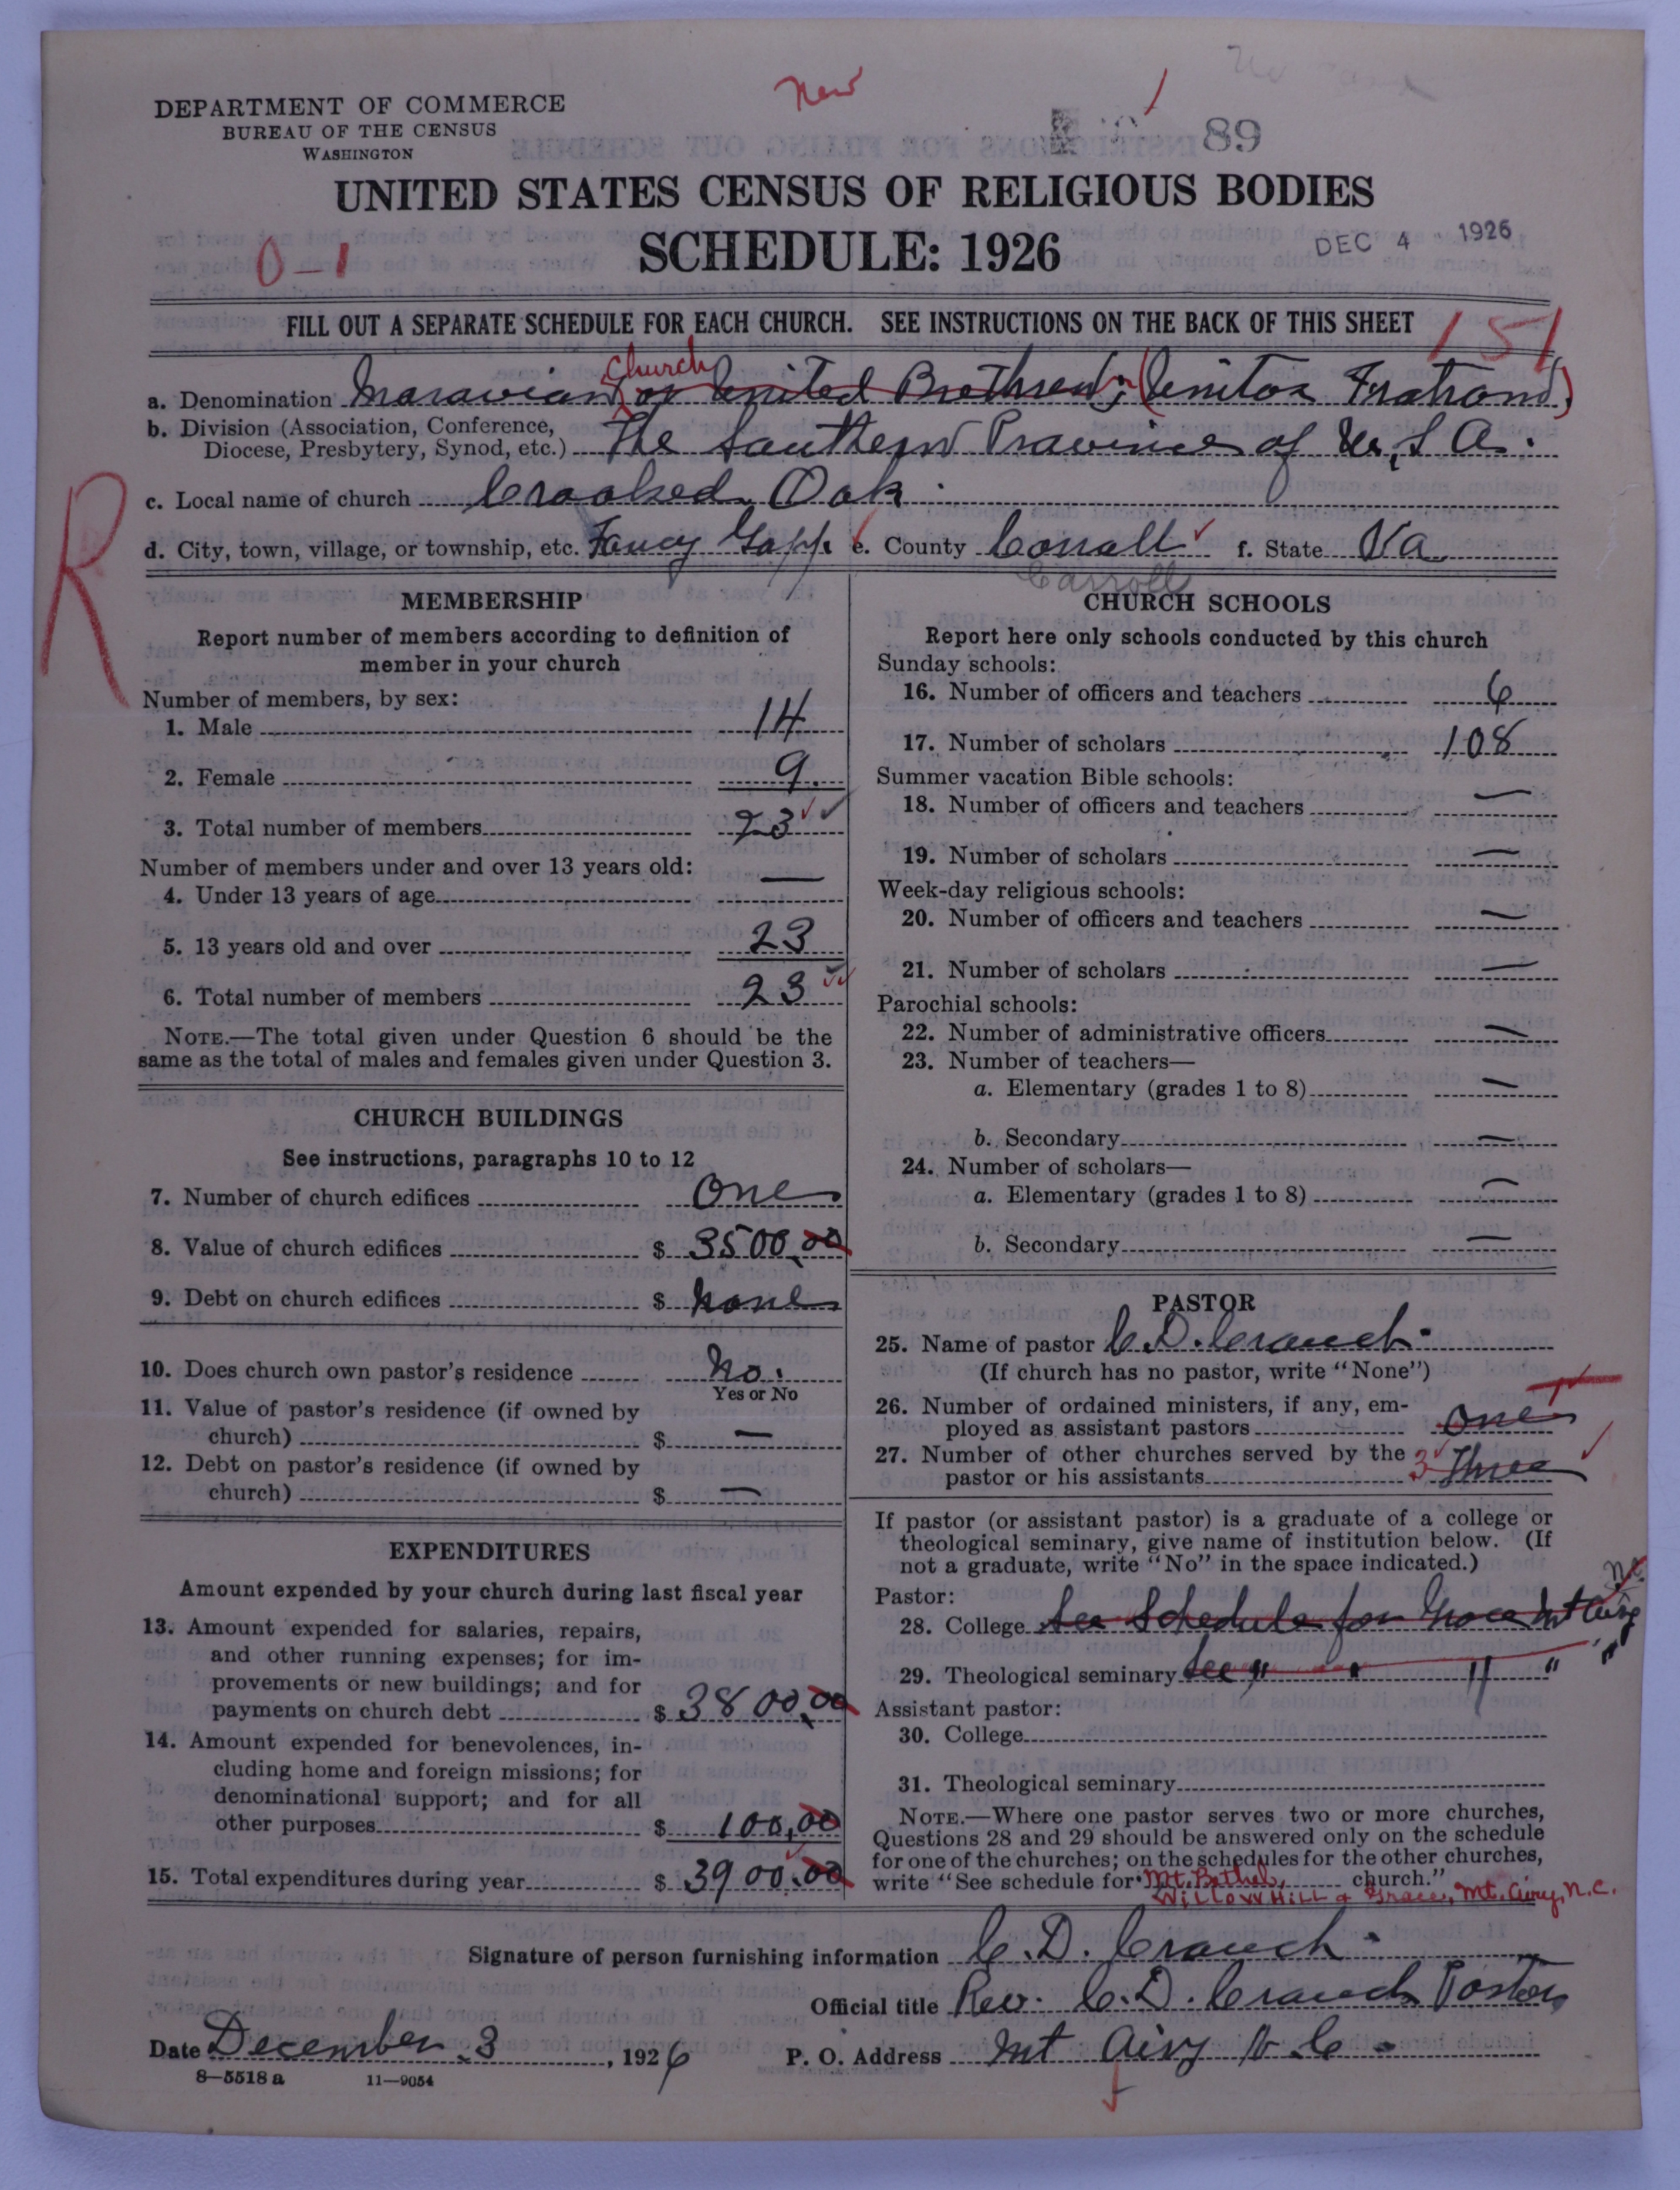 New
DEPARTMENT OF COMMERCE
BUREAU OF THE CENSUS
WASHINGTON
89
UNITED STATES CENSUS OF RELIGIOUS BODIES
SCHEDULE: 1926
DEC 4 1926
0-1
FILL OUT A SEPARATE SCHEDULE FOR EACH CHURCH. SEE INSTRUCTIONS ON THE BACK OF THIS SHEET
151
Church
a. Denomination Moravian or United Brethren; (Unitas Fratrum)
b. Division (Association, Conference,
Diocese, Presbytery, Synod, etc.) The Southern Province of U.S.A.
c. Local name of church Crooked Oak
d. City, town, village, or township, etc. Fancy Gapp. e. County Corroll f. State Va
Carroll
R
MEMBERSHIP
Report number of members according to definition of
member in your church
Number of members, by sex:
1. Male 14
2. Female 9.
3. Total number of members 23
Number of members under and over 13 years old:
4. Under 13 years of age —
5. 13 years old and over 23
6. Total number of members 23
NOTE.—The total given under Question 6 should be the
same as the total of males and females given under Question 3.
CHURCH BUILDINGS
See instructions, paragraphs 10 to 12
7. Number of church edifices One
8. Value of church edifices $ 3500.00
9. Debt on church edifices $ None
10. Does church own pastor's residence No.
Yes or No
11. Value of pastor's residence (if owned by
church) $ —
12. Debt on pastor's residence (if owned by
church) $ —
EXPENDITURES
Amount expended by your church during last fiscal year
13. Amount expended for salaries, repairs,
and other running expenses; for im-
provements or new buildings; and for
payments on church debt $ 3800.00
14. Amount expended for benevolences, in-
cluding home and foreign missions; for
denominational support; and for all
other purposes $ 100.00
15. Total expenditures during year $ 3900.00
CHURCH SCHOOLS
Report here only schools conducted by this church
Sunday schools:
16. Number of officers and teachers 6
17. Number of scholars 108
Summer vacation Bible schools:
18. Number of officers and teachers —
19. Number of scholars —
Week-day religious schools:
20. Number of officers and teachers —
21. Number of scholars —
Parochial schools:
22. Number of administrative officers —
23. Number of teachers—
a. Elementary (grades 1 to 8) —
b. Secondary —
24. Number of scholars—
a. Elementary (grades 1 to 8) —
b. Secondary —
PASTOR
25. Name of pastor C. D. Crouch
(If church has no pastor, write "None")
26. Number of ordained ministers, if any, em-
ployed as assistant pastors one
27. Number of other churches served by the
pastor or his assistants 3 Three
If pastor (or assistant pastor) is a graduate of a college or
theological seminary, give name of institution below. (If
not a graduate, write "No" in the space indicated.)
Pastor:
28. College See Schedule for Grace Mt Airy N.C.
29. Theological seminary See " " " " "
Assistant pastor:
30. College
31. Theological seminary
NOTE.—Where one pastor serves two or more churches,
Questions 28 and 29 should be answered only on the schedule
for one of the churches; on the schedules for the other churches,
write "See schedule for Mt. Bethel, church."
Willow Hill & Grace, Mt. Airy, N.C.
Signature of person furnishing information C. D. Crouch
Official title Rev. C. D. Crouch Pastor
Date December 3, 1926 P. O. Address Mt Airy N. C.
8—5518 a 11—9054